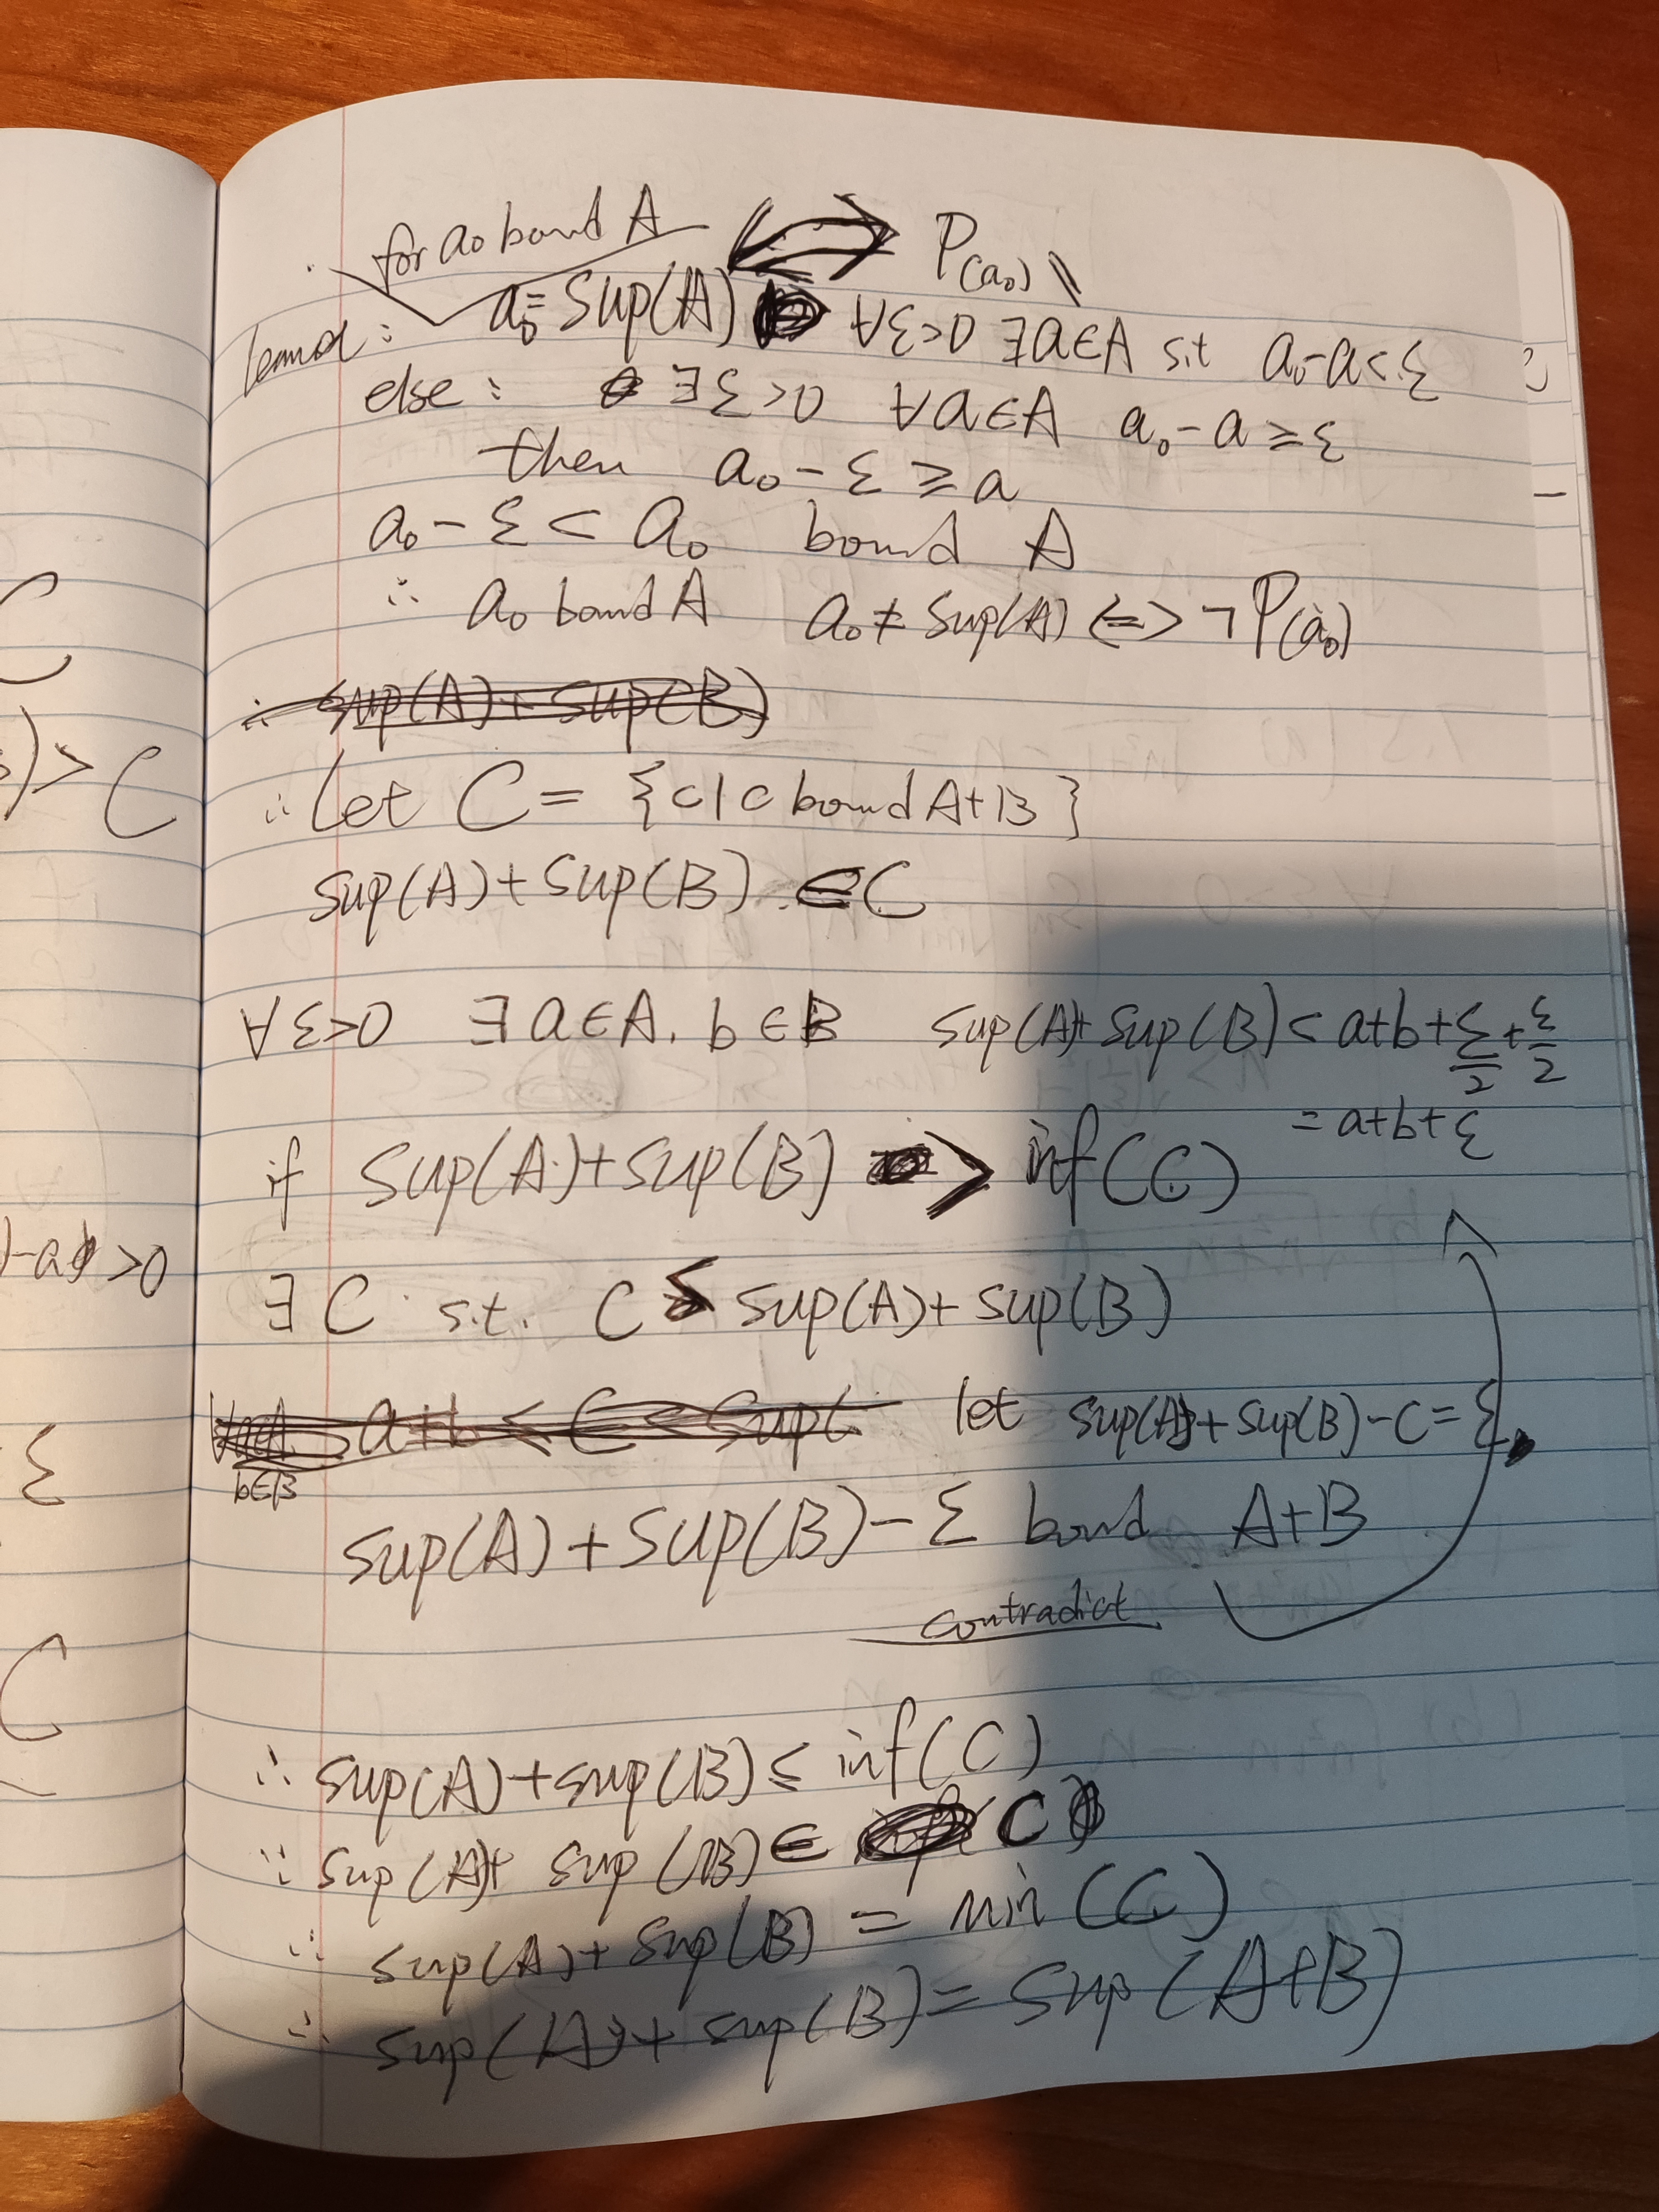 for a₀ bound A ⟺ P(a₀)
lemma: a₀ = sup(A) ∀ε>0 ∃a∈A s.t a₀-a<ε
else: ∃ε>0 ∀a∈A a₀-a≥ε
then a₀-ε≥a
a₀-ε<a₀ bound A
∴ a₀ bound A a₀≠sup(A) <=> ¬P(a₀)
∴ sup(A)+sup(B)
∴ Let C = {c|c bound A+B}
sup(A)+sup(B) ∈C
∀ε>0 ∃a∈A, b∈B sup(A)+sup(B)<a+b+ε/2+ε/2
=a+b+ε
if sup(A)+sup(B) > inf(C)
∃C s.t. C < sup(A)+sup(B)
a+b ≤ C < sup(
b∈B
let sup(A)+sup(B)-C=ε
sup(A)+sup(B)-ε bound A+B
contradict
∴ sup(A)+sup(B)≤inf(C)
∵ sup(A)+sup(B)∈ C
∴ sup(A)+sup(B)=min(C)
∴ sup(A)+sup(B)=sup(A+B)
C
)>C
>0
ε
C